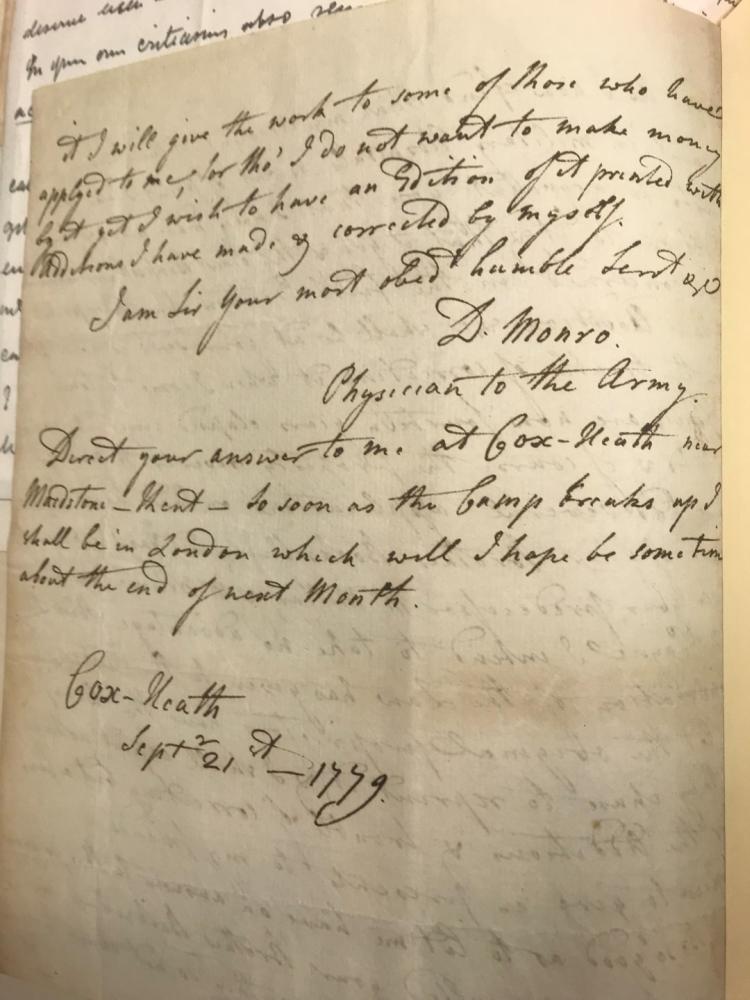 deserve even
In your own criticisms also
it I will give the work to some of those who have
applyed to me, for tho' I do not want to make money
by it yet I wish to have an Edition of it printed with
Additions I have made & corrected by myself.
I am Sir your most obedt humble Servt &c
D. Monro.
Physician to the Army.
Direct your answer to me at Cox-Heath near
Maidstone - Kent - So soon as the Camp breaks up I
shall be in London which will I hope be sometim
about the end of next Month.
Cox-Heath
Septr 21st - 1779.